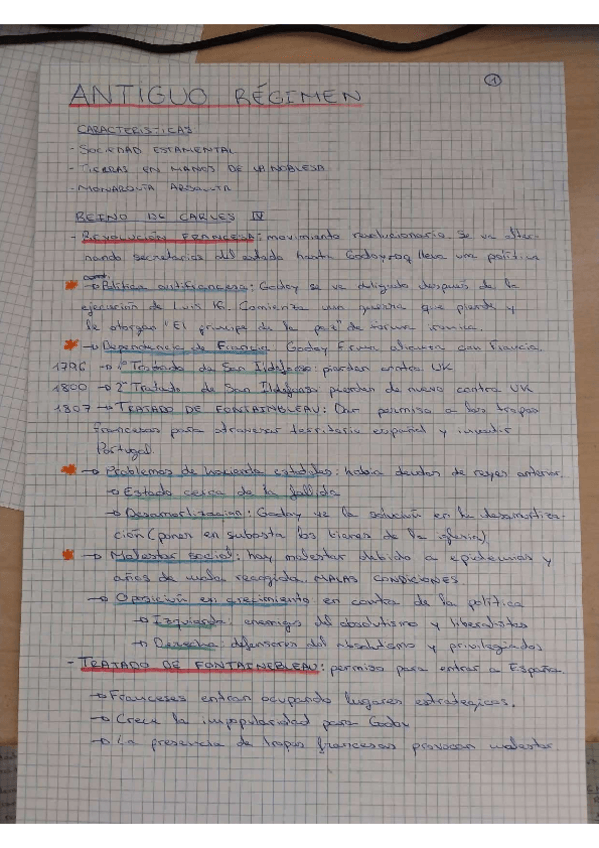 1
ANTIGUO RÉGIMEN
CARACTERISTICAS
- SOCIEDAD ESTAMENTAL
- TIERRAS EN MANOS DE LA NOBLESA
- MONARQUÍA ABSOLUTA
REINO DE CARLES IV
- REVOLUCIÓN FRANCESA: movimiento revolucionario. Se va alter-
nando secretarios del estado hasta Godoy xq lleva una política
→ Política antifrancesa: Godoy se ve obligado después de la
ejecución de Luis 16. Comienza una guerra que pierde y
le otorgan "El príncipe de la paz" de forma irónica.
→ Dependencia de Francia Godoy firma alianza con Francia.
1796 → 1º Tratado de San Ildefonso: pierden contra UK
1800 → 2º Tratado de San Ildefonso pierden de nuevo contra UK
1807 → TRATADO DE FONTAINBLEAU: Dar permiso a las tropas
francesas para atravesar territorio español y invadir
Portugal.
→ Problemas de hacienda estatales: había deudas de reyes anterior.
→ Estado cerca de la fallida
→ Desamortización: Godoy ve la solución en la desamortiza-
ción (poner en subasta los bienes de la iglesia)
→ Malestar social: hay malestar debido a epidemias y
años de mala recogida. MALAS CONDICIONES.
→ Oposición en crecimiento en contra de la política
→ Izquierda: enemigos del absolutismo y liberalistas
→ Derecha: defensores del absolutismo y privilegiados
- TRATADO DE FONTAINEBLEAU: permiso para entrar a España.
→ Franceses entran ocupando lugares estrategicos.
→ Crece la impopularidad para Godoy
→ La presencia de tropas francesas provocan malestar